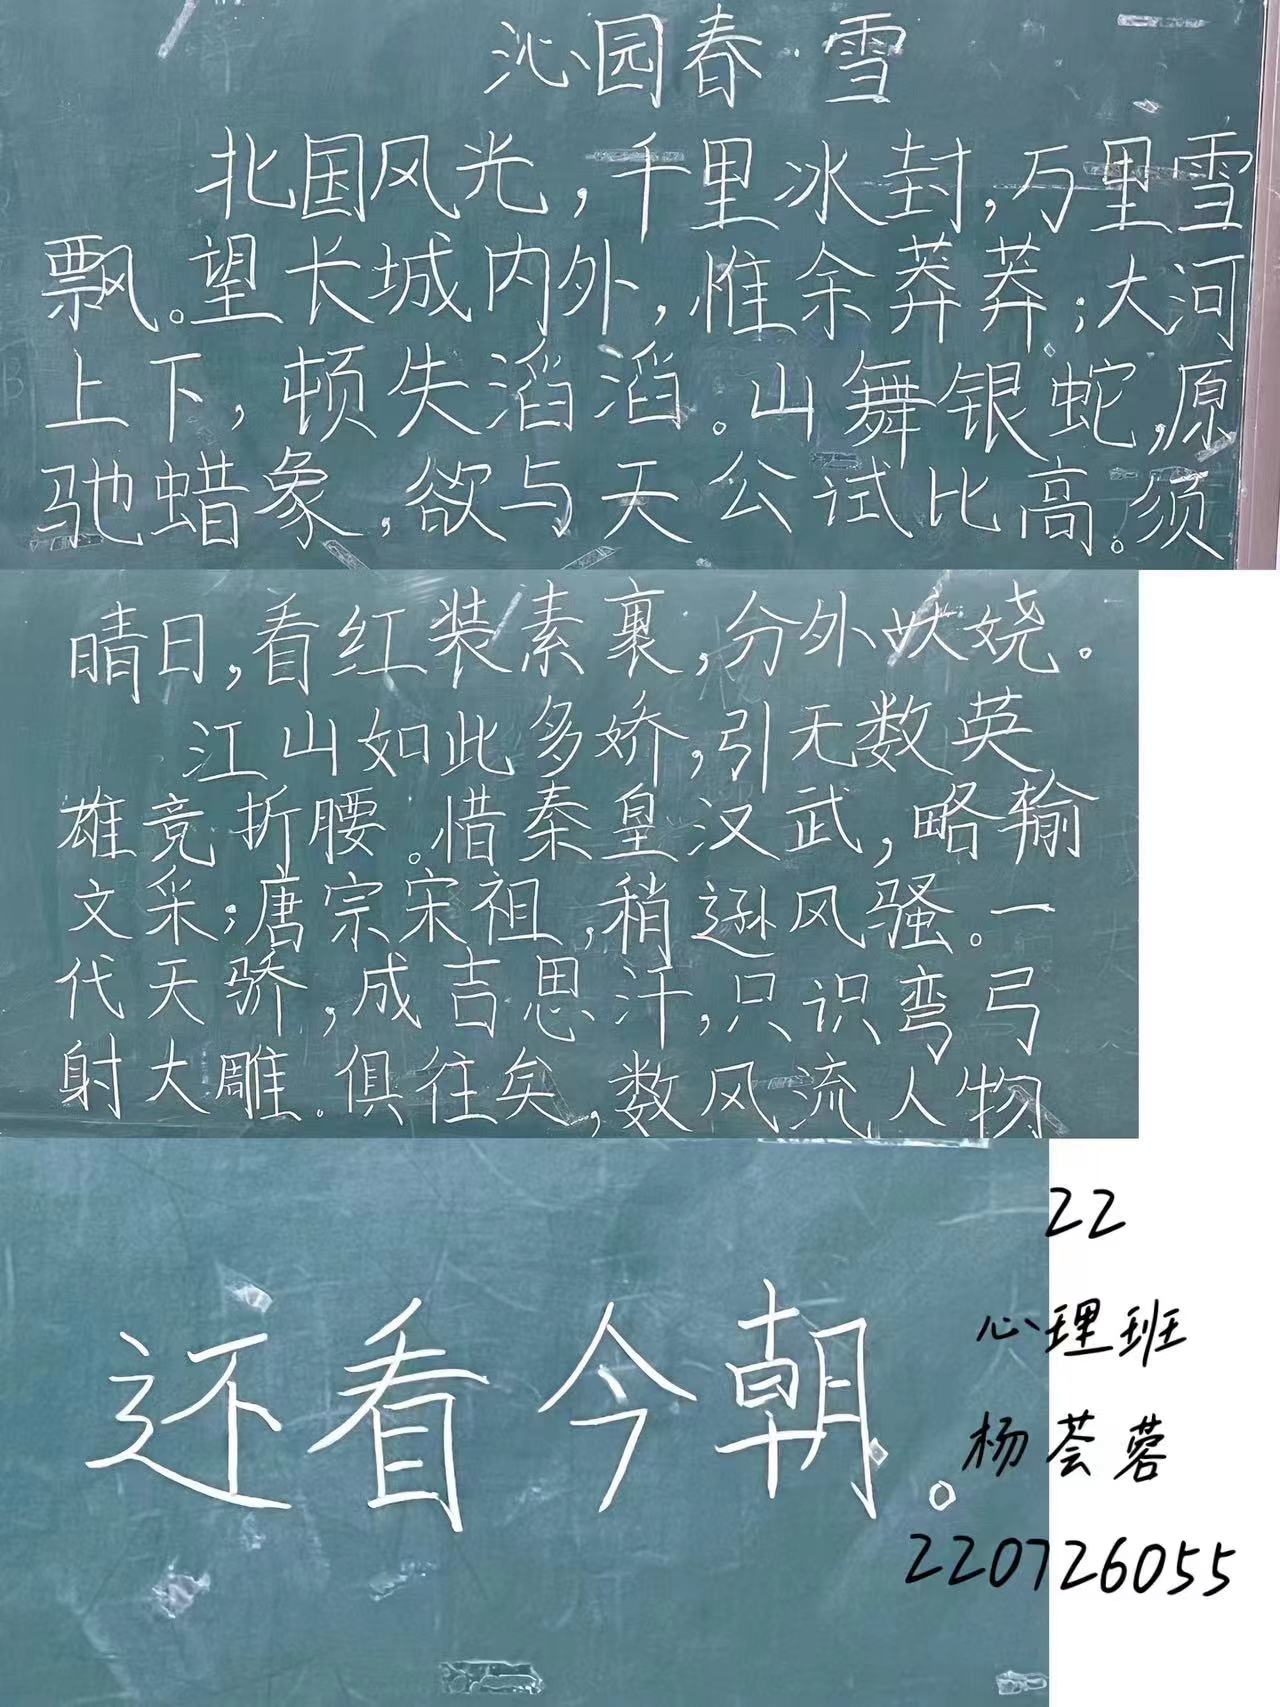 沁园春·雪
北国风光,千里冰封,万里雪
飘。望长城内外,惟余莽莽;大河
上下,顿失滔滔。山舞银蛇,原
驰蜡象,欲与天公试比高。须
晴日,看红装素裹,分外妖娆.
江山如此多娇,引无数英
雄竞折腰。惜秦皇汉武,略输
文采;唐宗宋祖,稍逊风骚。一
代天骄,成吉思汗,只识弯弓
射大雕。俱往矣,数风流人物
还看今朝。
22
心理班
杨荟蓉
220726055